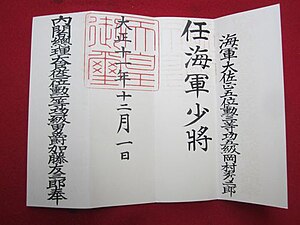 海軍大佐正五位勲三等功五級岡村秀二郎
任海軍少將
天皇御璽
大正十一年十二月一日
内閣總理大臣從二位勲一等功二級男爵加藤友三郎奉